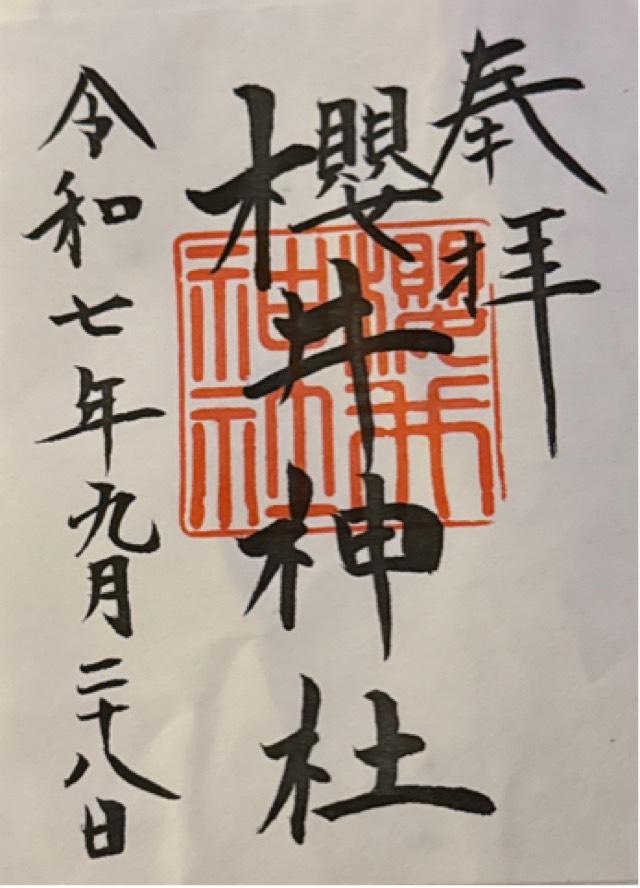 奉拝
櫻井神社
櫻井
神社
令和七年九月二十八日